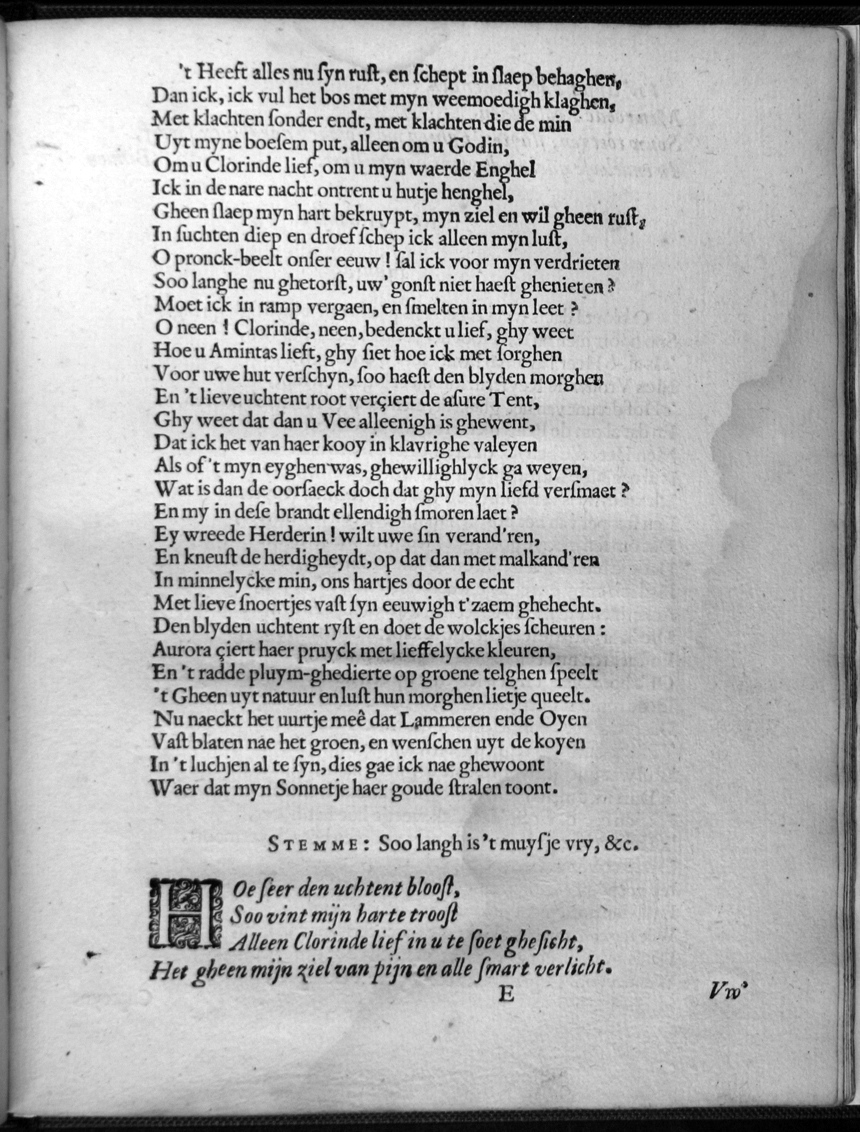 't Heeft alles nu ſyn ruſt, en ſchept in ſlaep behaghen,
Dan ick, ick vul het bos met myn weemoedigh klaghen,
Met klachten ſonder endt, met klachten die de min
Uyt myne boeſem put, alleen om u Godin,
Om u Clorinde lief, om u myn waerde Enghel
Ick in de nare nacht ontrent u hutje henghel,
Gheen ſlaep myn hart bekruypt, myn ziel en wil gheen ruſt,
In ſuchten diep en droef ſchep ick alleen myn luſt,
O pronck-beelt onſer eeuw ! ſal ick voor myn verdrieten
Soo langhe nu ghetorſt, uw' gonſt niet haeſt ghenieten ?
Moet ick in ramp vergaen, en ſmelten in myn leet ?
O neen ! Clorinde, neen, bedenckt u lief, ghy weet
Hoe u Amintas lieft, ghy ſiet hoe ick met ſorghen
Voor uwe hut verſchyn, ſoo haeſt den blyden morghen
En 't lieve uchtent root verçiert de aſure Tent,
Ghy weet dat dan u Vee alleenigh is ghewent,
Dat ick het van haer kooy in klavrighe valeyen
Als of 't myn eyghen was, ghewillighlyck ga weyen,
Wat is dan de oorſaeck doch dat ghy myn liefd verſmaet ?
En my in deſe brandt ellendigh ſmoren laet ?
Ey wreede Herderin ! wilt uwe ſin verand'ren,
En kneuſt de herdigheydt, op dat dan met malkand'ren
In minnelycke min, ons hartjes door de echt
Met lieve ſnoertjes vaſt ſyn eeuwigh t'zaem ghehecht.
Den blyden uchtent ryſt en doet de wolckjes ſcheuren :
Aurora çiert haer pruyck met lieffelycke kleuren,
En 't radde pluym-ghedierte op groene telghen ſpeelt
't Gheen uyt natuur en luſt hun morghen lietje queelt.
Nu naeckt het uurtje meê dat Lammeren ende Oyen
Vaſt blaten nae het groen, en wenſchen uyt de koyen
In 't luchjen al te ſyn, dies gae ick nae ghewoont
Waer dat myn Sonnetje haer goude ſtralen toont.
STEMME: Soo langh is 't muyſje vry, &c.
HOe ſeer den uchtent blooſt,
Soo vint mijn harte trooſt
Alleen Clorinde lief in u te ſoet gheſicht,
Het gheen mijn ziel van pijn en alle ſmart verlicht.
E Vw'